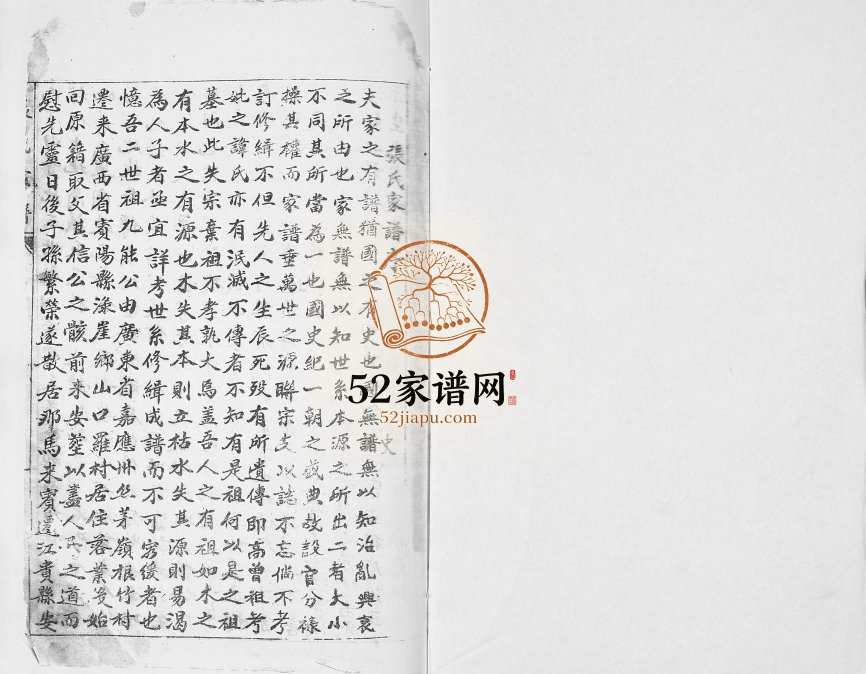 張氏家譜
夫家之有譜猶國之有史也國無譜無以知治亂興衰
之所由也家無譜無以知世系本源之所出二者大小
不同其所當為一也國史紀一朝之盛典故設官分祿
操其權而家譜垂萬世之源聯宗支以誌不忘倘不考
訂修緝不但先人之生辰死歿有所遺傳即高曾祖考
妣之諱氏亦有泯滅不傳者不知有是祖何以是之祖
墓也此失宗棄祖不孝孰大焉蓋吾人之有祖如水之
有本水之有源也木失其本則立枯水失其源則易渴
為人子者亟宜詳考世系修緝成譜而不可窮緩者也
憶吾二世祖九能公由廣東省嘉應州丝茅嶺根竹村
遷来廣西省賓陽縣渌崖鄉山口羅村居住落業笅始
回原籍取父其信公之骸前来安葬以盡人子之道而
慰先靈日後子孫繁榮遂散居那馬来賓遷江貴縣安
史
52家谱网
52jiapu.com